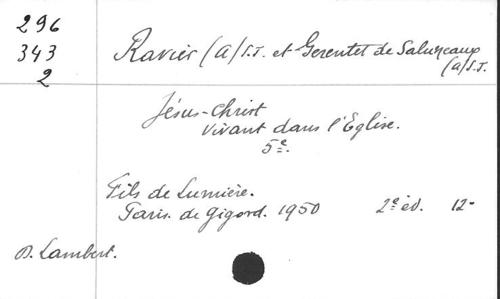 296
343
2
Ravier (A) S.J. et Gerentet de Saluneaux
(A) S.J.
Jésus-Christ
vivant dans l'Eglise.
5e.
Fils de Lumière.
Paris. de Gigord. 1950 2e éd. 12-
D. Lambert.